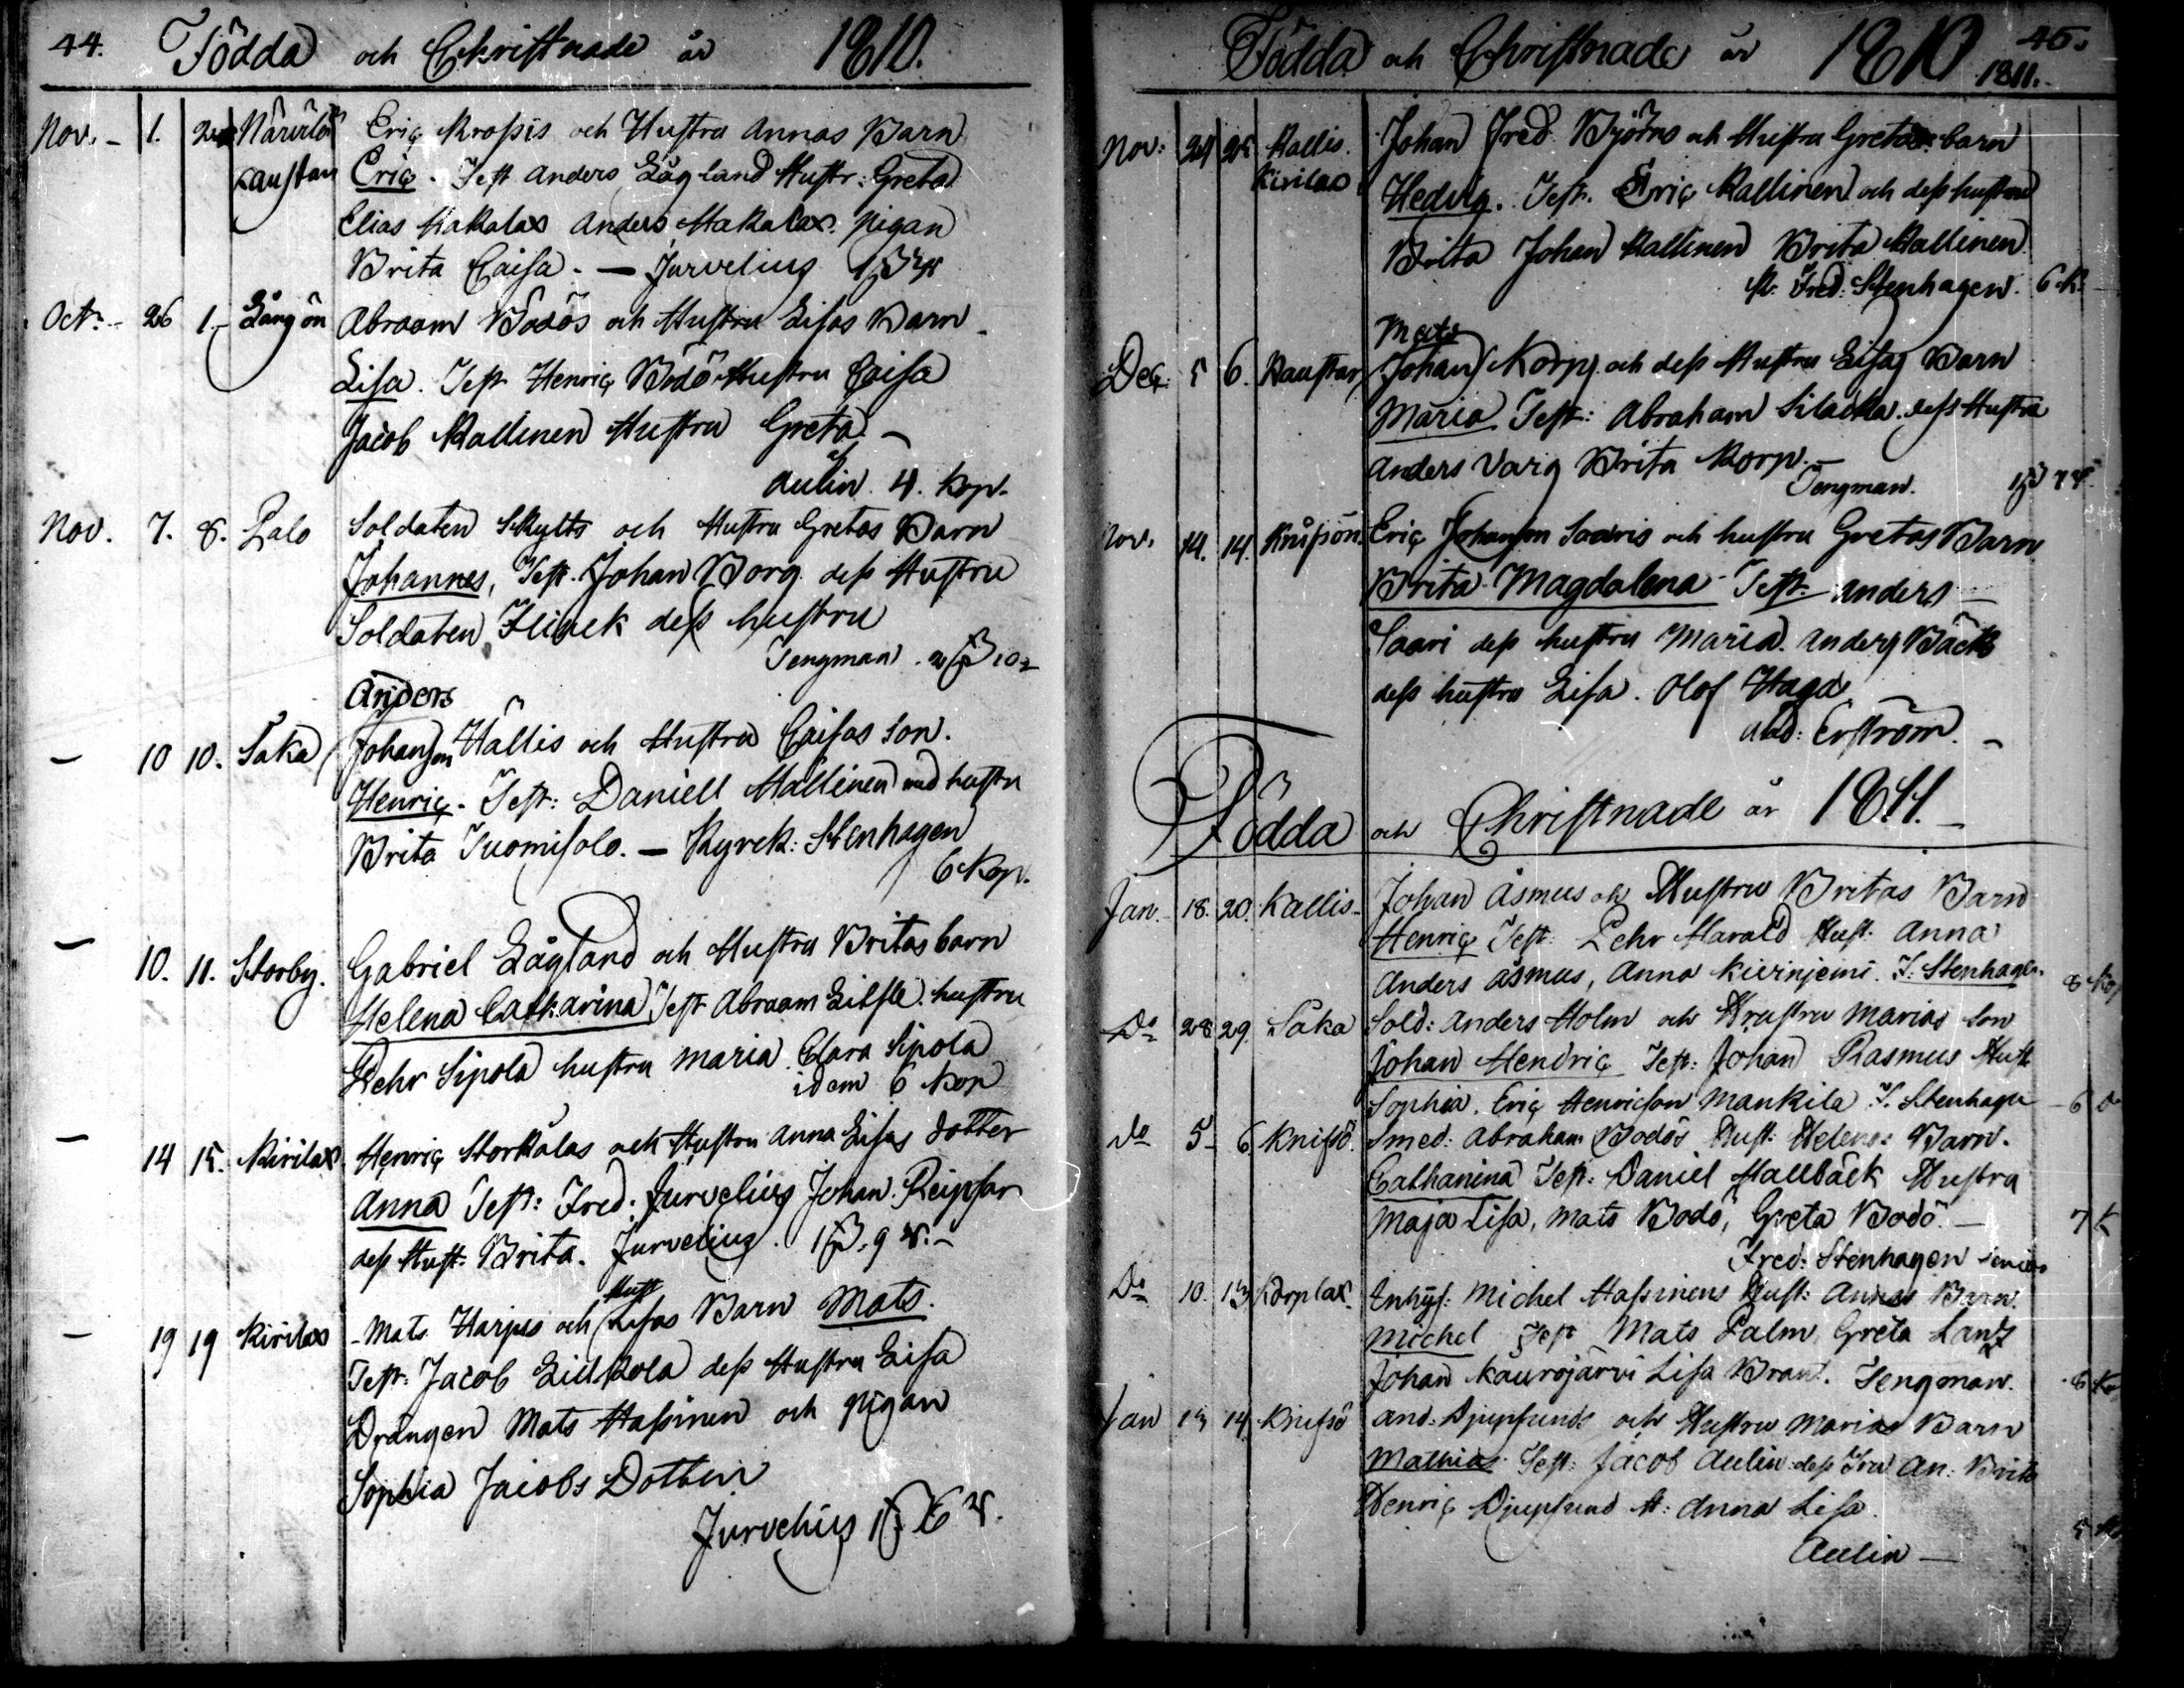 44. Födda och Christnade år 1810.
Nov. - 1. 2 Närvilä Eric Krossis och Hustru Annas Barn
Kaustar Eric. Test Anders Lågland Hustr: Greta
Elias Makalax Anders Makalax. Pigan
Brita Caisa. — Jurvelius
Oct:- 26 1.- Långön Abraam Bodös och Hustru Lisas Barn
Lisa. Test Henric Bodö Hustru Caisa
Jacob Kallinen Hustru Greta. -
Aulin. 4. kop.
Nov. 7. 8. Palo Soldaten Skylts och Hustru Gretas Barn
Johannes, Test. Johan Borg dess Hustru
Soldaten Flinck dess hustru
Tengman.
Anders
— 10 10. Såka Johanson Hällis och Hustru Caisas son.
Henric. Test: Daniell Mällinen med hustru
Brita Tuomisalo. — Kyrck: Stenhagen
6 Kop.
— 10. 11. Storby. Gabriel Lågland och Hustru Britas barn
Helena Catharina Test Abraam hustru
Pehr Sipola hustru Maria. Clara Sipola
idem 6 Kop
— 14 15. Kirilax Henric Storkålas och Hustru Anna Lisas dotter
Anna Test: Fred: Jurvelius Johan
dess Hust: Brita. Jurvelius.
Hust
— 19 19 Kirilax Mats Harjus och Lisas Barn Mats.
Test: Jacob dess Hustru Lisa
Drängen Mats Hassinen och Pigan
Sophia Jacobs Dotter
Jurvelius
Födda och Christnade år 1810 45.
1811.
Nov: 24 25 Kallis. Johan Fred Björns och Hustru Gretas barn
Kirilax Hedvig. Test. Eric Kallinen och dess hustru
Brita Johan Kallinen Brita Kallinen
Fred: Stenhagen. 6 k.
Mats
Dec. 5 6. Kaustar Johan Korpj. och dess Hustru Lisas Barn
Maria Test: Abraham Silacka dess Hustru
Anders Varg Brita Korp. —
Tengman.
Nov. 14. 14. Knifsön. Eric Johanson Saaris och hustru Gretas Barn
Brita Magdalena Test: Anders —
Saari dess hustru Maria. Anders Bäck
dess hustru Lisa. Olof Haga
And: Erström. -
Födda och Christnade år 1811. —
Jan. 18. 20. Kallis Johan Åsmus och Hustru Britas Barn
Henric Test: Pehr Harald Hust: Anna
Anders Åsmus, Anna Kivinjemi. F: Stenhagen. 8 Kop
Do 28 29. Såka Sold: Anders Holm och Hustru Marias Son
Johan Hendric Test: Johan Rasmus Hust
Sophia. Eric Henricson Mankila F. Stenhagen 6 do
do 5 6 Knifsö. Smed: Abraham Bodös Hust: Helenas Barn.
Catharina Test: Daniel Hallbäck Hustru
Maja Lisa, Mats Bodö, Greta Bodö. — 7 K
Fred: Stenhagen senior
Do 10. 13 Korplax. Inhys: Michel Hassinens Hust: Annas Barn.
Michel Test Mats Palm, Greta Lantz
Johan Kaurojärvi Lisa Brant. Tengman. 6 Kop
Jan 13 14 Knifsö And: Djupsunds och Hustru Marias Barn
Mathias Test: Jacob Aulin dess Fru An: Brita
Henric Djupsund H: Anna Lisa.
Aulin —